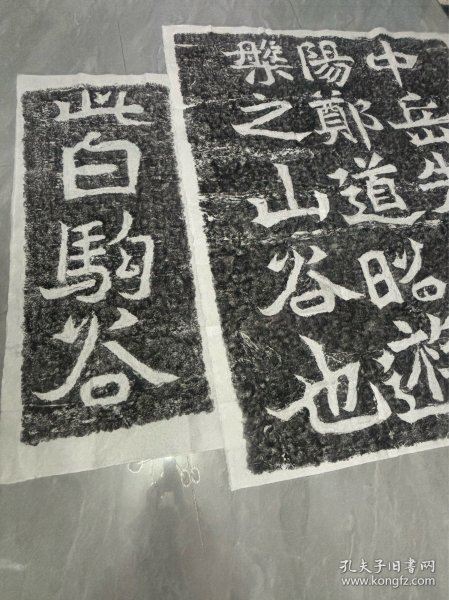 中岳先
陽鄭道昭遊
槃之山谷也
此白駒谷
孔夫子旧书网
www.kongfz.com